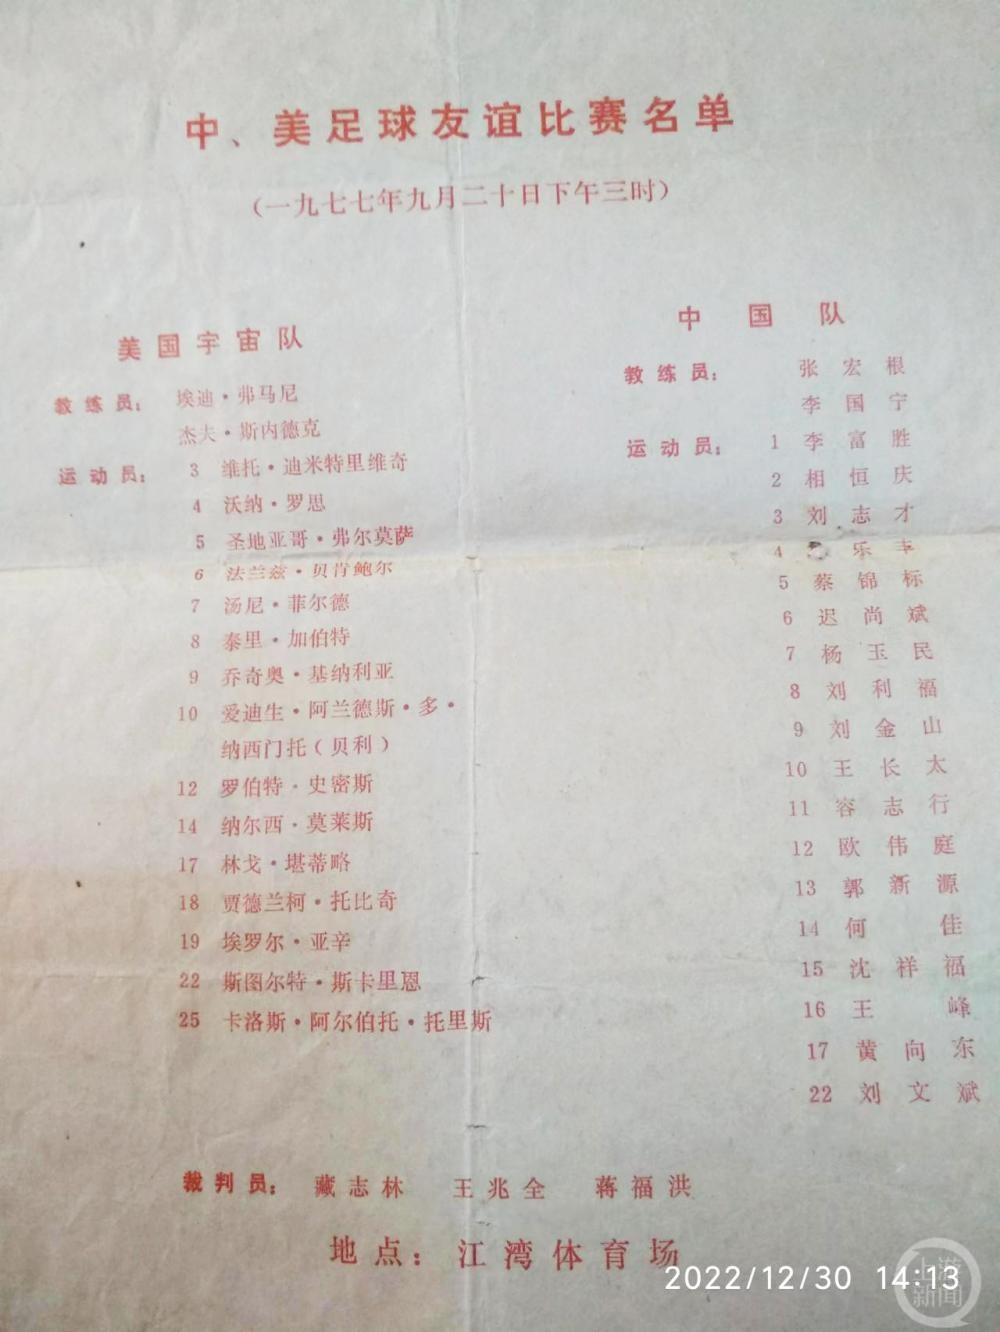 中、美足球友谊比赛名单
（一九七七年九月二十日下午三时）
美国宇宙队
教练员： 埃迪·弗马尼
杰夫·斯内德克
运动员： 3 维托·迪米特里维奇
4 沃纳·罗思
5 圣地亚哥·弗尔莫萨
6 法兰兹·贝肯鲍尔
7 汤尼·菲尔德
8 泰里·加伯特
9 乔奇奥·基纳利亚
10 爱迪生·阿兰德斯·多·
纳西门托（贝利）
12 罗伯特·史密斯
14 纳尔西·莫莱斯
17 林戈·堪蒂略
18 贾德兰柯·托比奇
19 埃罗尔·亚辛
22 斯图尔特·斯卡里恩
25 卡洛斯·阿尔伯托·托里斯
中国队
教练员： 张宏根
李国宁
运动员： 1 李富胜
2 相恒庆
3 刘志才
4 乐丰
5 蔡锦标
6 迟尚斌
7 杨玉民
8 刘利福
9 刘金山
10 王长太
11 容志行
12 欧伟庭
13 郭新源
14 何佳
15 沈祥福
16 王峰
17 黄向东
22 刘文斌
裁判员： 藏志林 王兆全 蒋福洪
地点：江湾体育场
2022/12/30 14:13
上游
新闻